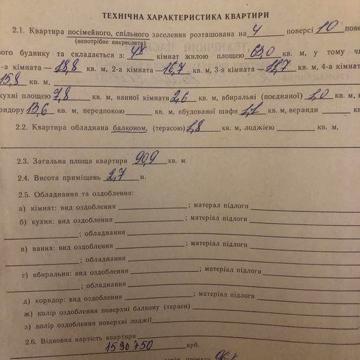 ТЕХНІЧНА ХАРАКТЕРИСТИКА КВАРТИРИ
2.1. Квартира посімейного, спільного заселення розташована на 4 поверсі 10 пове
(непотрібне викреслити)
ого будинку та складається з 4 кімнат жилою площею 63,0 кв. м, у тому чи
-а кімната — 18,8 кв. м, 2-а кімната — 16,7 кв. м, 3-я кімната — 12,7 кв. м, 4-а кімнат
15,8 кв. м,
кухні площею 7,8 кв. м, ванної кімнати 2,6 кв. м, вбиральні (поєднаної) 1,0 кв. м,
ридору 13,6 кв. м, передпокою кв. м, вбудованої шафи 1,1 кв. м, веранди кв.
м.
2.2. Квартира обладнана балконом, (терасою) 1,8 кв. м, лоджією кв. м,
2.3. Загальна площа квартири 90,9 кв. м
2.4. Висота приміщень 2,7 м.
2.5. Обладнання та оздоблення:
а) кімнат: вид оздоблення ; матеріал підлоги
; обладнання
б) кухня: вид оздоблення ; матеріал підлоги
; обладнання
в) ванна: вид оздоблення ; матеріал підлоги
; обладнання
г) вбиральня: вид оздоблення ; матеріал підлоги
; обладнання
д) коридор: вид оздоблення ; матеріал підлоги
ж) колір оздоблення поверхні балкону (тераси)
з) колір оздоблення поверхні лоджії
2.6. Відновна вартість квартири
крб.